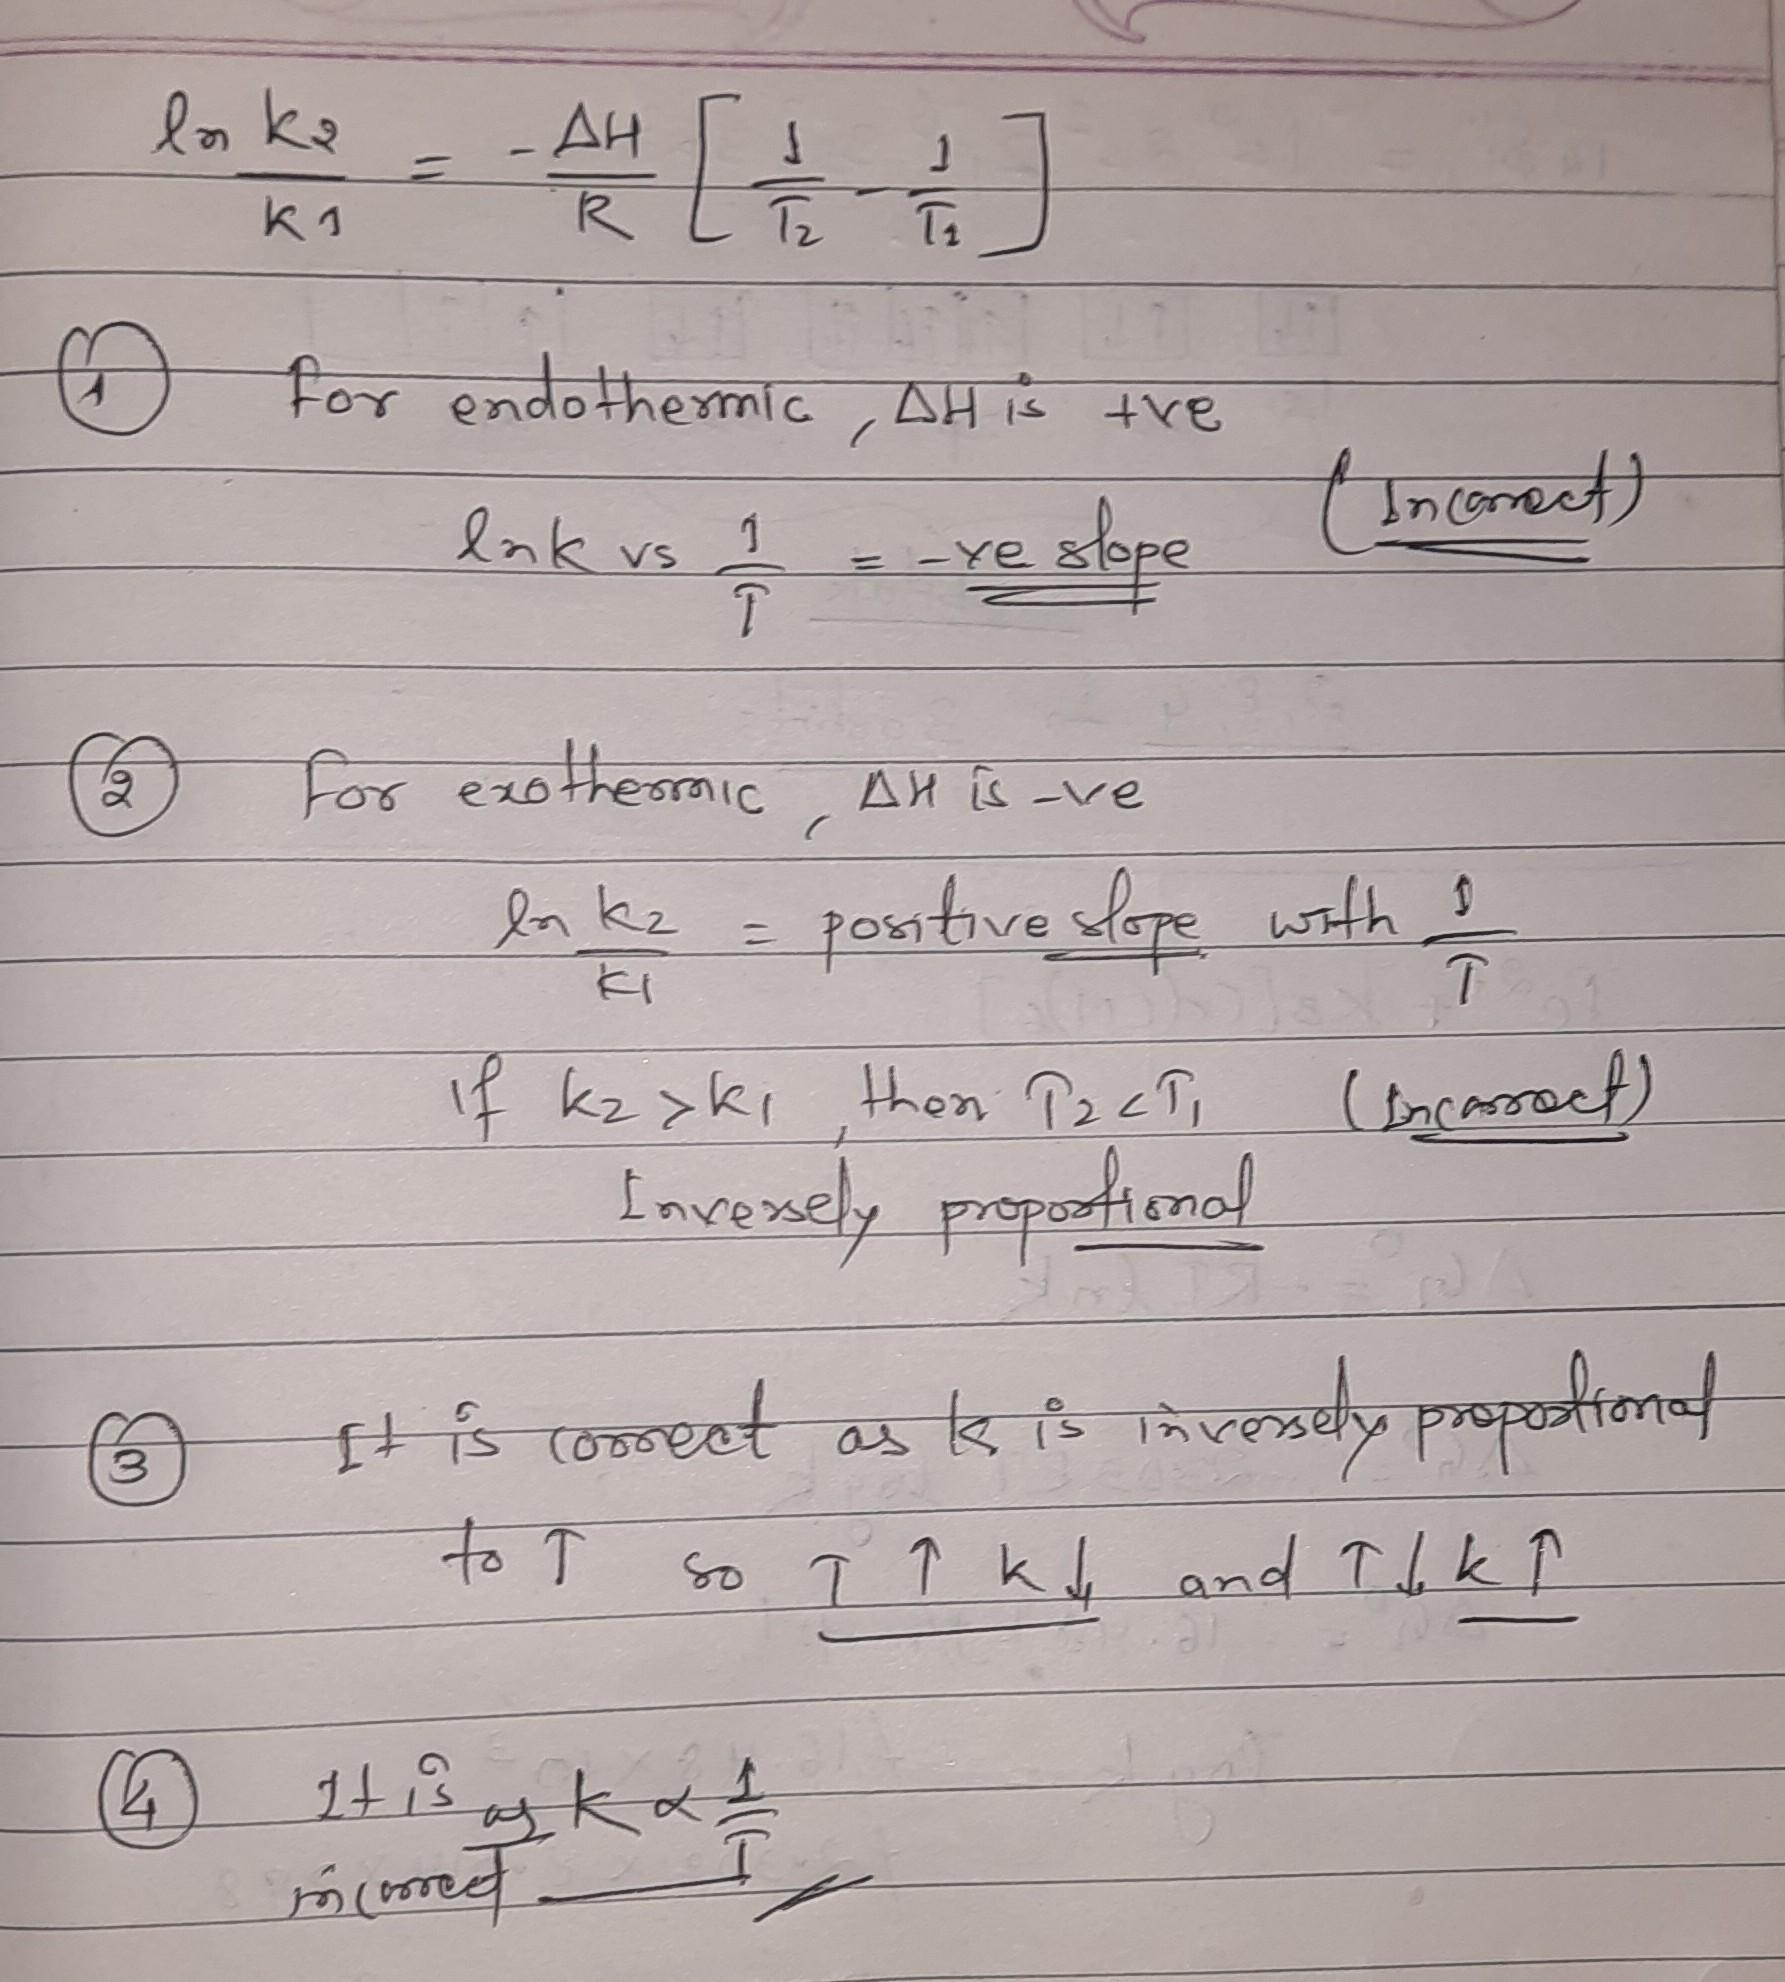 ln k2/k1 = -ΔH/R [1/T2 - 1/T1]
1 For endothermic, ΔH is +ve
lnk vs 1/T = -ve slope (Incorrect)
2 For exothermic, ΔH is -ve
ln k2/k1 = positive slope with 1/T
if k2 > k1, then T2 < T1 (Incorrect)
Inversely proportional
3 It is correct as k is inversely proportional
to T so T ↑ k↓ and T↓ k ↑
4 It is as k ∝ 1/T
incorrect